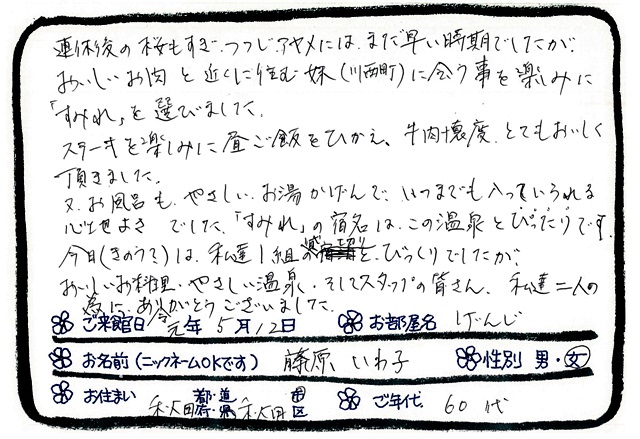 連休後の桜もすぎ、つつじ、アヤメには、まだ早い時期でしたが、
おいしいお肉と近くに住む妹(川西町)に会う事を楽しみに
「すみれ」を選びました。
ステーキを楽しみに昼ご飯をひかえ、牛肉懐度、とてもおいしく
頂きました。
又、お風呂も、やさしい、お湯かげんで、いつまでも入っていられる
心地よさでした。「すみれ」の宿名は、この温泉とぴったりです。
今日(きのう?)は、私達1組の と、びっくりでしたが、
おいしいお料理・やさしい温泉・そしてスタッフの皆さん、私達二人の
為に、ありがとうございました。
ご来館日 令元年5月12日 お部屋名 げんじ
お名前(ニックネームOKです) 藤原 いわ子 性別 男・女
お住まい 都・道・府・県 市・区 ご年代 60代